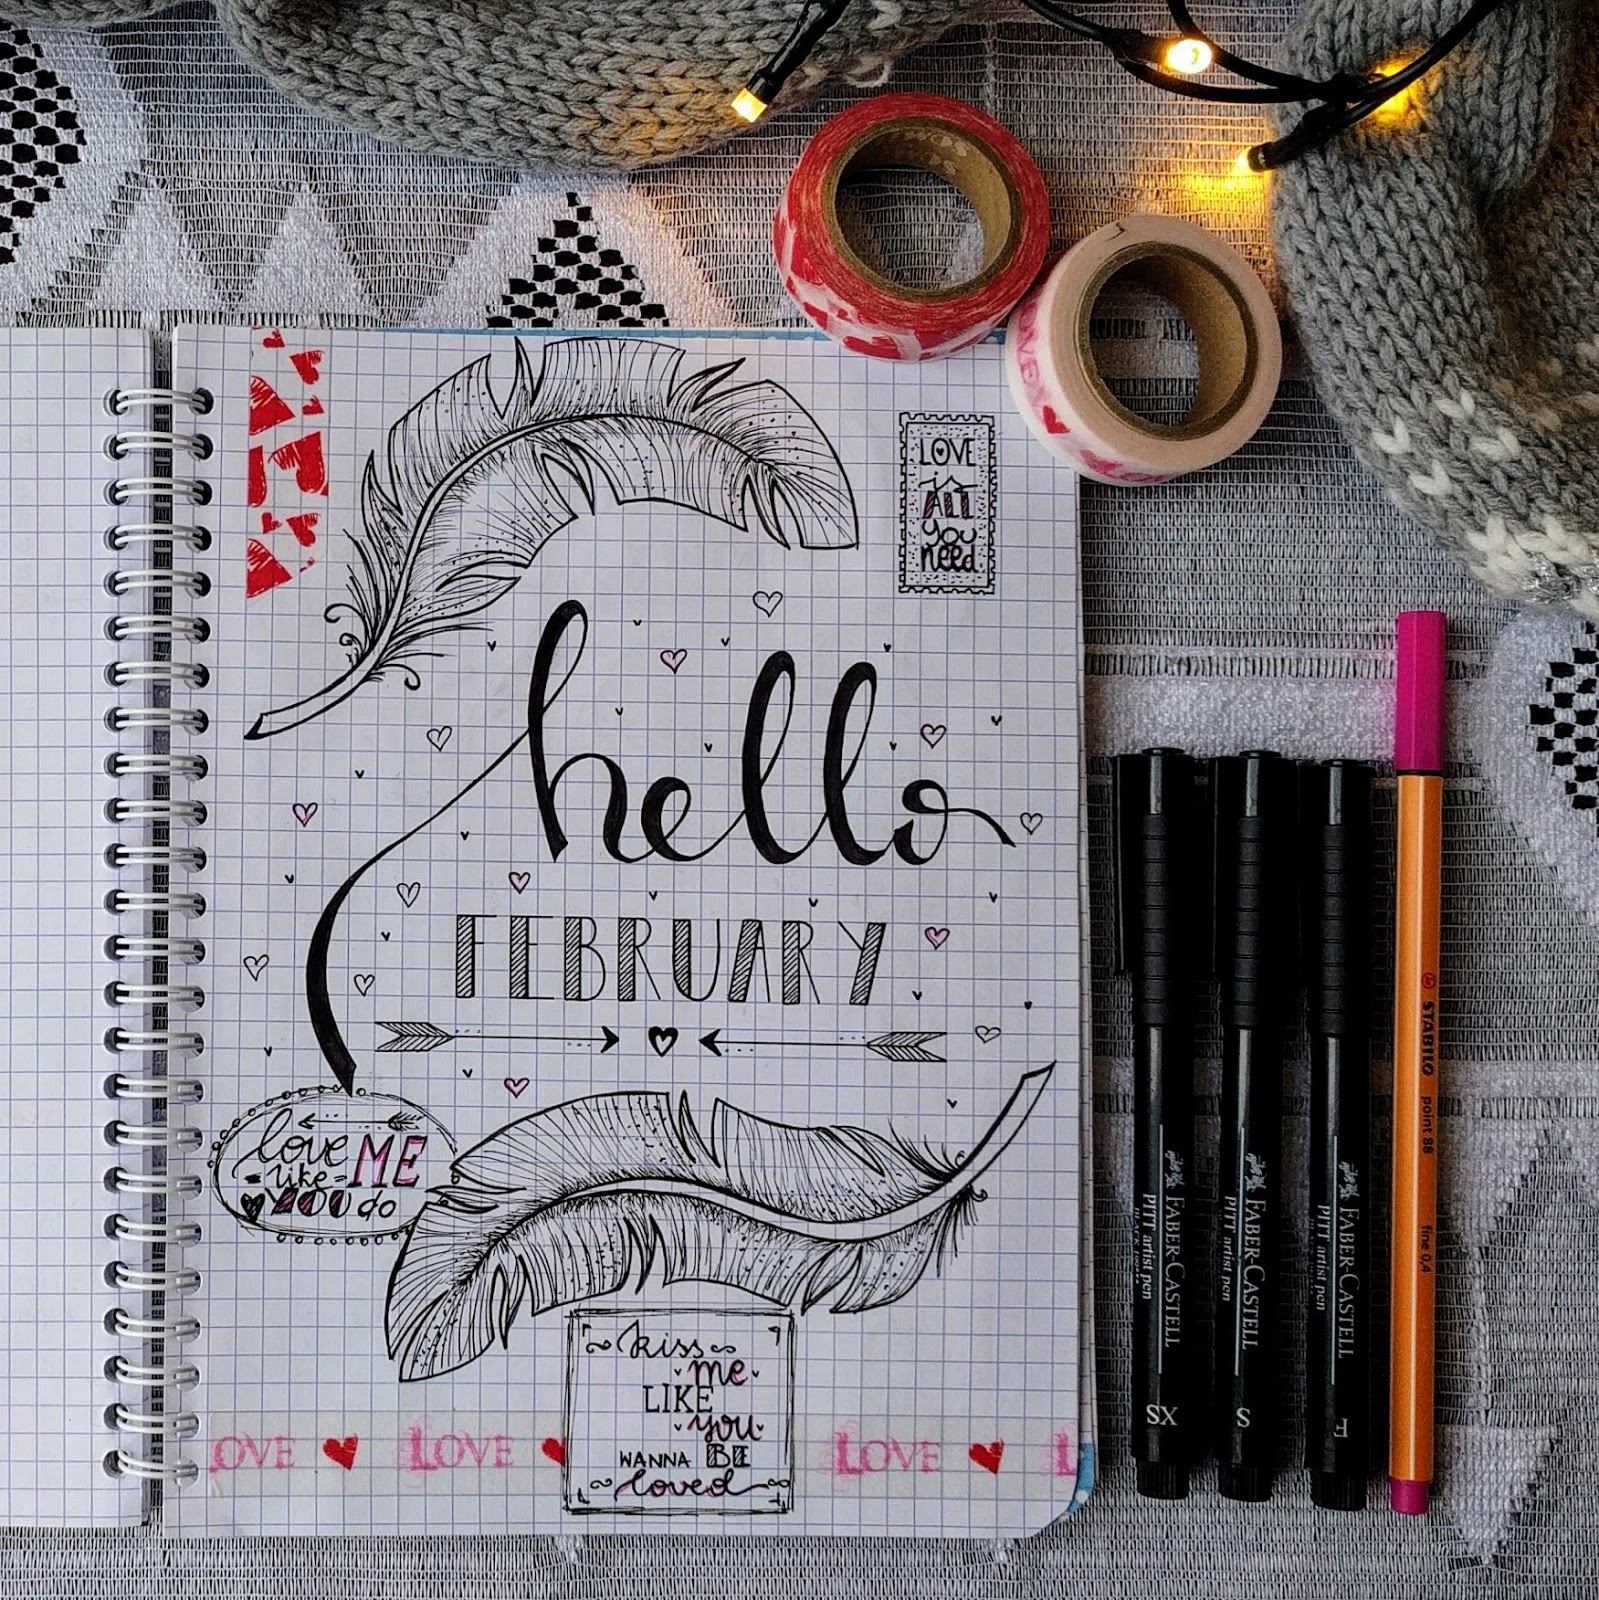 LOVE
is
ALL
you
need
hello
FEBRUARY
love ME
like
YOU do
kiss
me
LIKE
you
WANNA BE
loved
OVE LOVE LOVE L
FABER-CASTELL
PITT artist pen
XS
FABER-CASTELL
PITT artist pen
S
FABER-CASTELL
PITT artist pen
F
STABILO point 88 fine 0,4